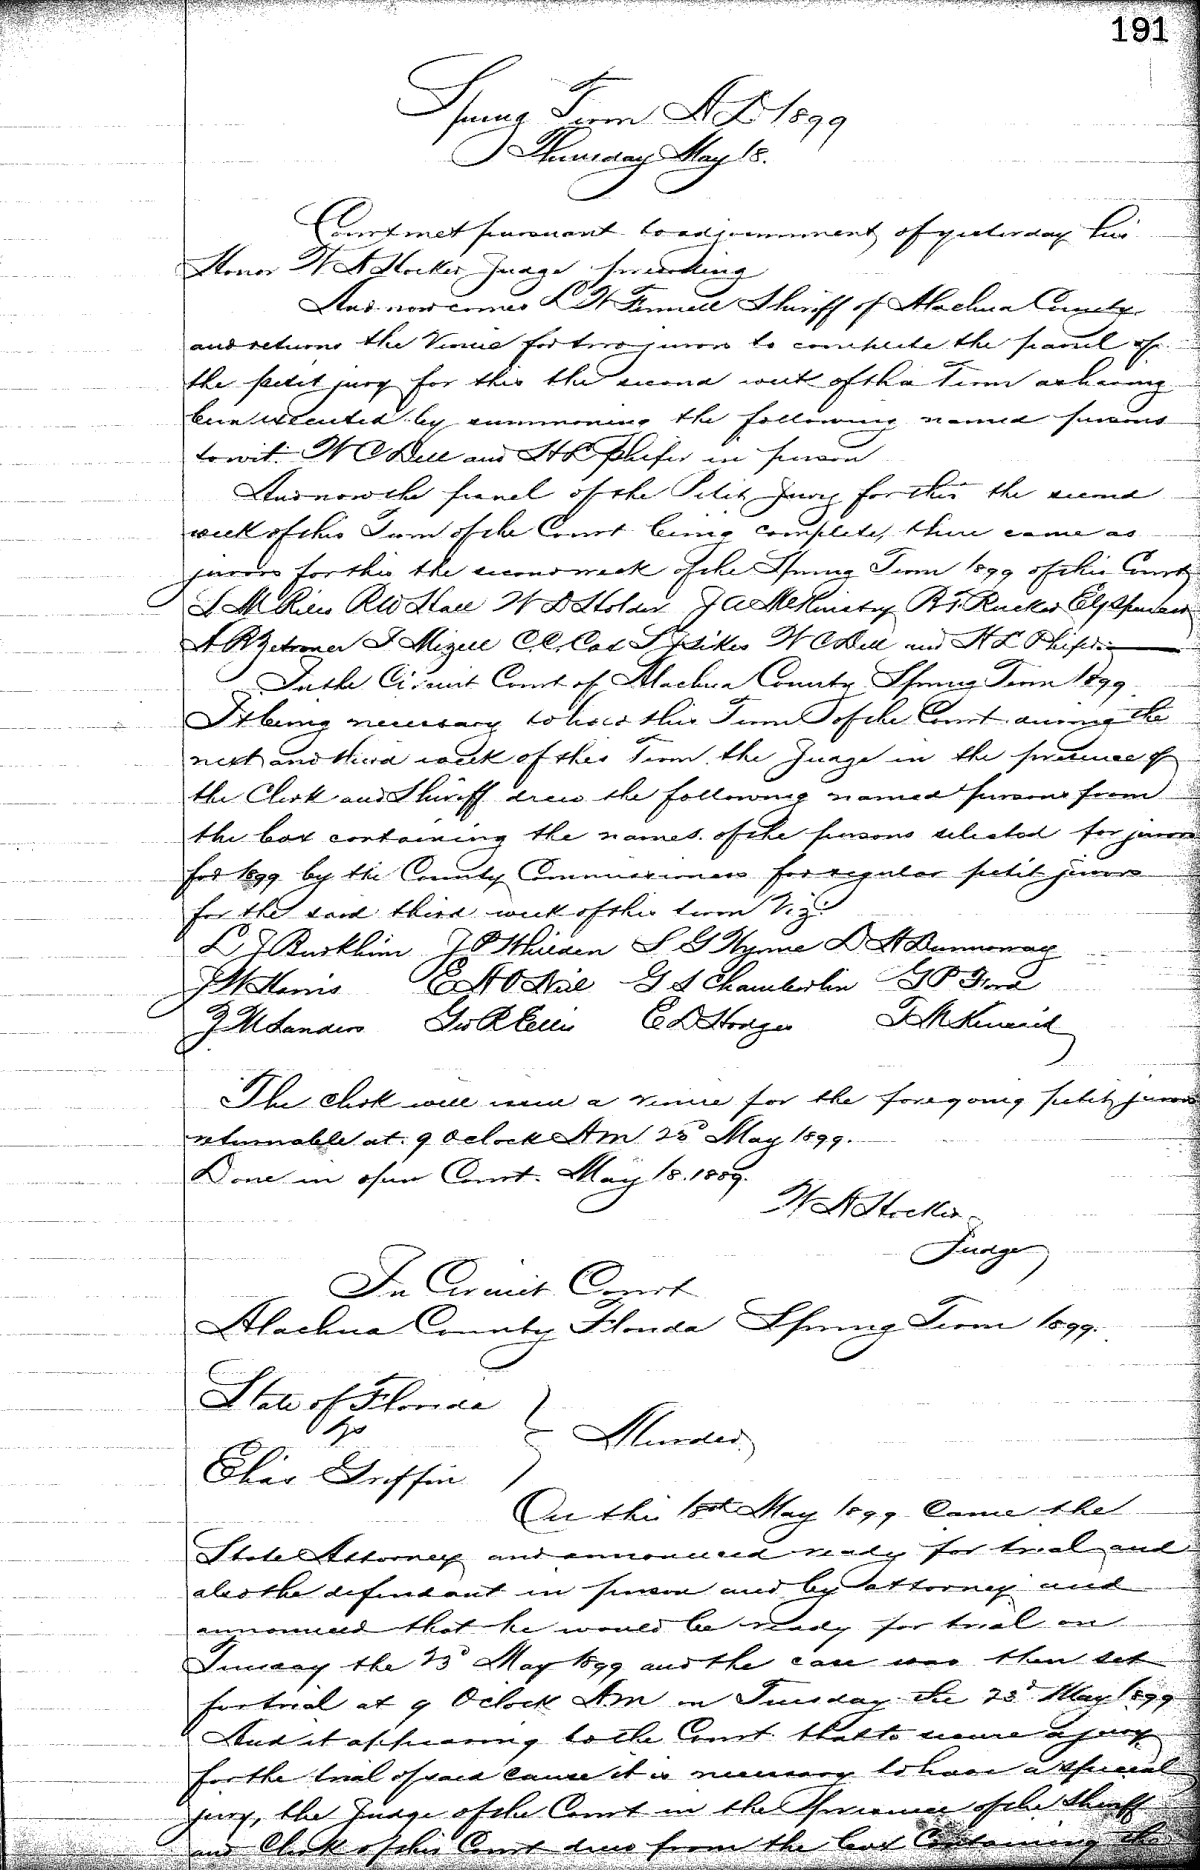 191
Spring Term A D 1899
Thursday May 18.
Court met pursuant to adjournment of yesterday his
Honor W A Hocker Judge presiding
And now comes L W Fennell Sheriff of Alachua County
and returns the Venire for two jurors to complete the panel of
the petit jury for this the second week of the Term as having
been executed by summoning the following named persons
to wit: W C Dell and H L Phifer in person
And now the panel of the Petit Jury for this the second
week of this Term of the Court being complete, there came as
jurors for this the second week of the Spring Term 1899 of this Court
S M Rice R W Hall W D Holder J A McKinstry R F Rucker
A R Zetrouer J Mizell C.C. Cox Sikes W C Dell and H L Phifer
In the Circuit Court of Alachua County Spring Term 1899.
It being necessary to hold this Term of the Court during the
next and third week of this Term the Judge in the presence of
the Clerk and Sheriff drew the following named persons from
the box containing the names of the persons selected for jurors
for 1899 by the County Commissioners for regular petit jurors
for the said third week of this term Viz:
L J Burkhim J P Whilden S G Wynne D H Dunnoway
J W Harris E H O Neil G S Chamberlin G P Ford
J M Sanders Geo R Ellis E D Hodges
The clerk will issue a venire for the foregoing petit jurors
returnable at 9 Oclock Am 23d May 1899.
Done in open Court. May 18. 1889.
W A Hocker
Judge
In Circuit Court
Alachua County Florida Spring Term 1899.
State of Florida
vs
Murder
Elias Griffin
On this 18th May 1899 came the
State Attorney and announced ready for trial and
also the defendant in person and by attorney and
announced that he would be ready for trial on
Tuesday the 23d May 1899 and the case was then set
for trial at 9 Oclock Am on Tuesday the 23d May 1899
And it appearing to the Court that to secure a jury
for the trial of said cause it is necessary to have a special
jury, the Judge of the Court in the presence of the Sheriff
and Clerk of this Court drew from the box containing the